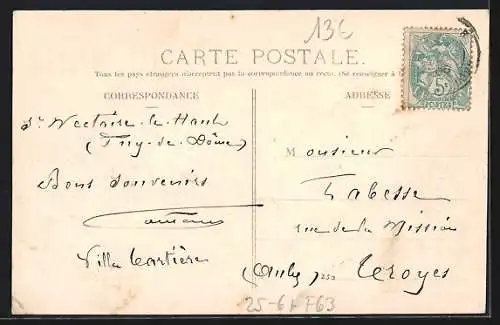 136
CARTE POSTALE.
Tous les pays étrangers n'acceptent pas la correspondance au recto. (Se renseigner à
CORRESPONDANCE
ADRESSE
St Nectaire-le-Haut
(Puy-de-Dôme)
Bons souvenirs
Villa
Monsieur
Labesse
rue de la Mission
(Aube) Troyes
25-6
F63
5c
POSTES